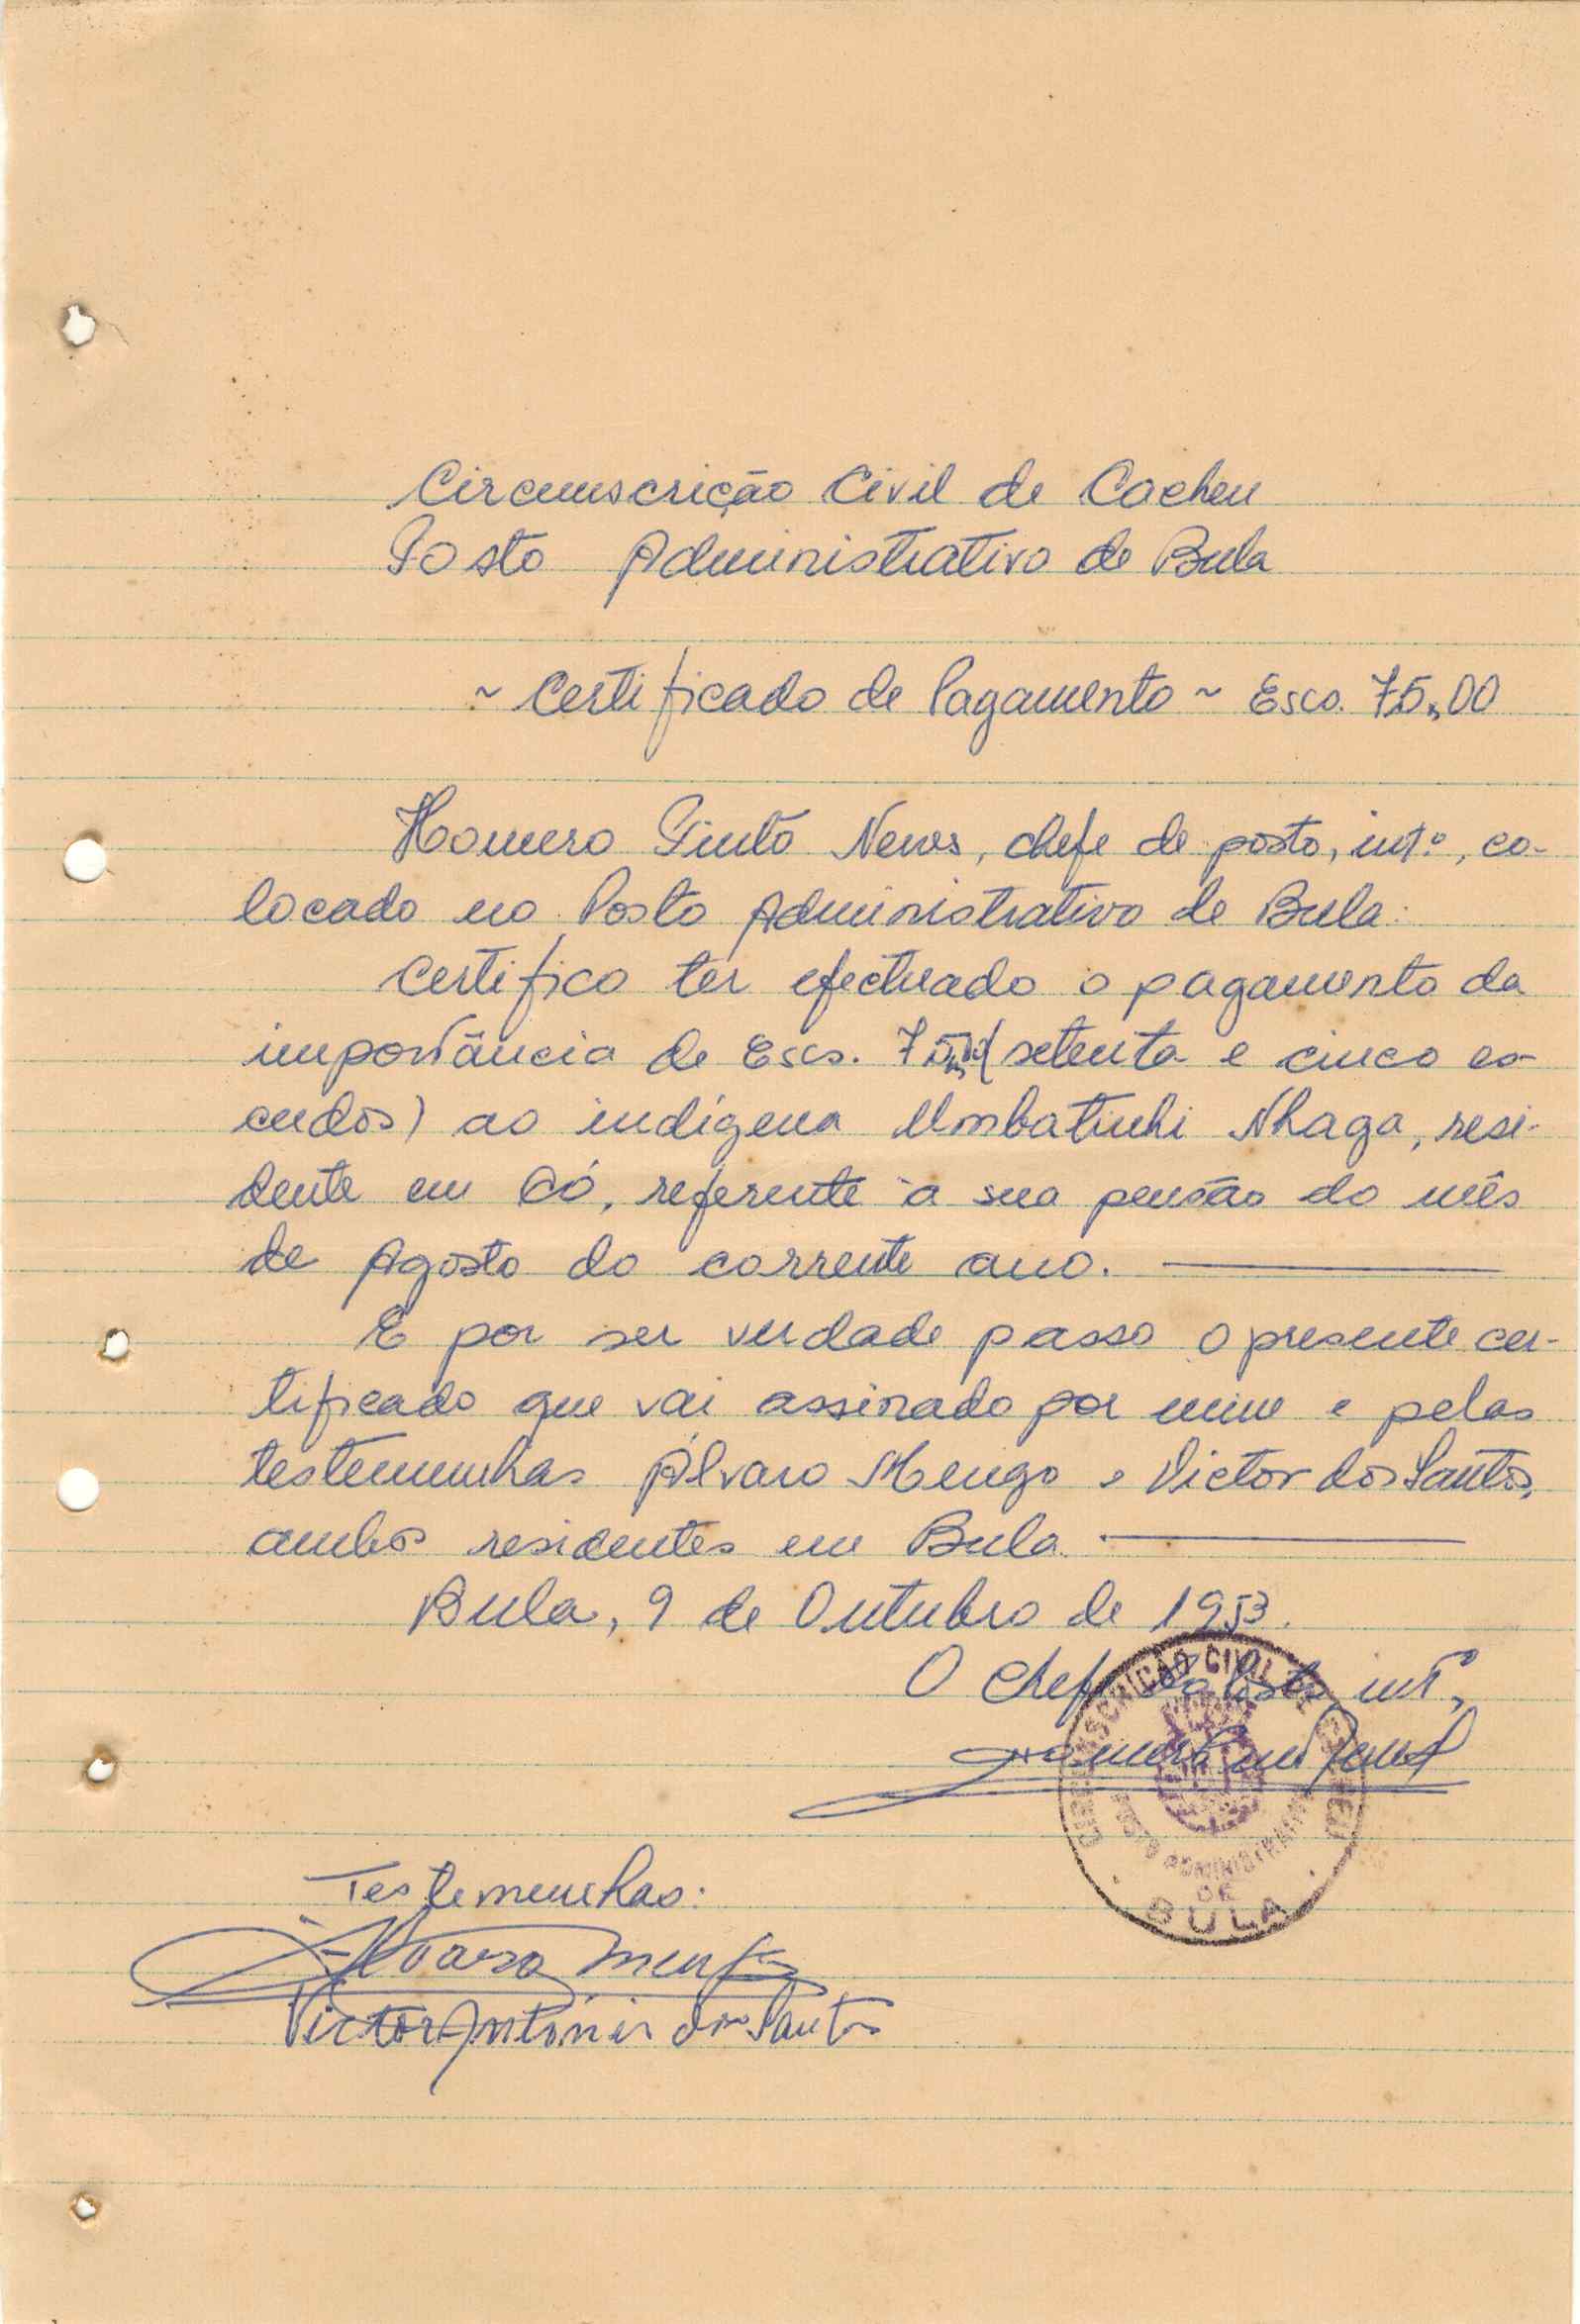 Circunscrição Civil de Cacheu
Posto Administrativo de Bula
~ Certificado de Pagamento ~ Escs. 75,00
Homero Pinto Neves, chefe de posto, intº, co-
locado no Posto Administrativo de Bula:
Certifico ter efectuado o pagamento da
importância de Escs. 75,00 (setenta e cinco es-
cudos) ao indígena Umbatinhi Nhaga, resi-
dente em Có, referente à sua pensão do mês
de Agosto do corrente ano.
E por ser verdade passo o presente cer-
tificado que vai assinado por mim e pelas
testemunhas Álvaro Mengo e Victor dos Santos,
ambos residentes em Bula
Bula, 9 de Outubro de 1953.
O Chefe do Posto, intº,
CIRCUNSCRIÇÃO CIVIL DE CACHEU
POSTO ADMINISTRATIVO
DE
BULA
Testemunhas:
Álvaro Mengo
Victor António dos Santos